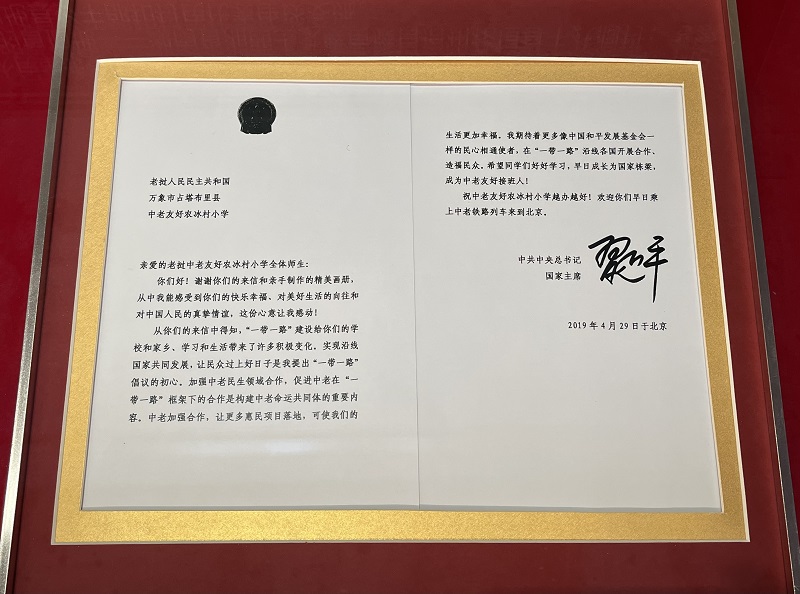 老挝人民民主共和国
万象市占塔布里县
中老友好农冰村小学
亲爱的老挝中老友好农冰村小学全体师生：
你们好！谢谢你们的来信和亲手制作的精美画册，
从中我能感受到你们的快乐幸福、对美好生活的向往和
对中国人民的真挚情谊，这份心意让我感动！
从你们的来信中得知，“一带一路”建设给你们的学
校和家乡、学习和生活带来了许多积极变化。实现沿线
国家共同发展，让民众过上好日子是我提出“一带一路”
倡议的初心。加强中老民生领域合作，促进中老在“一
带一路”框架下的合作是构建中老命运共同体的重要内
容。中老加强合作，让更多惠民项目落地，可使我们的
生活更加幸福。我期待着更多像中国和平发展基金会一
样的民心相通使者，在“一带一路”沿线各国开展合作、
造福民众。希望同学们好好学习，早日成长为国家栋梁，
成为中老友好接班人！
祝中老友好农冰村小学越办越好！欢迎你们早日乘
上中老铁路列车来到北京。
中共中央总书记
国家主席
习近平
2019年4月29日于北京